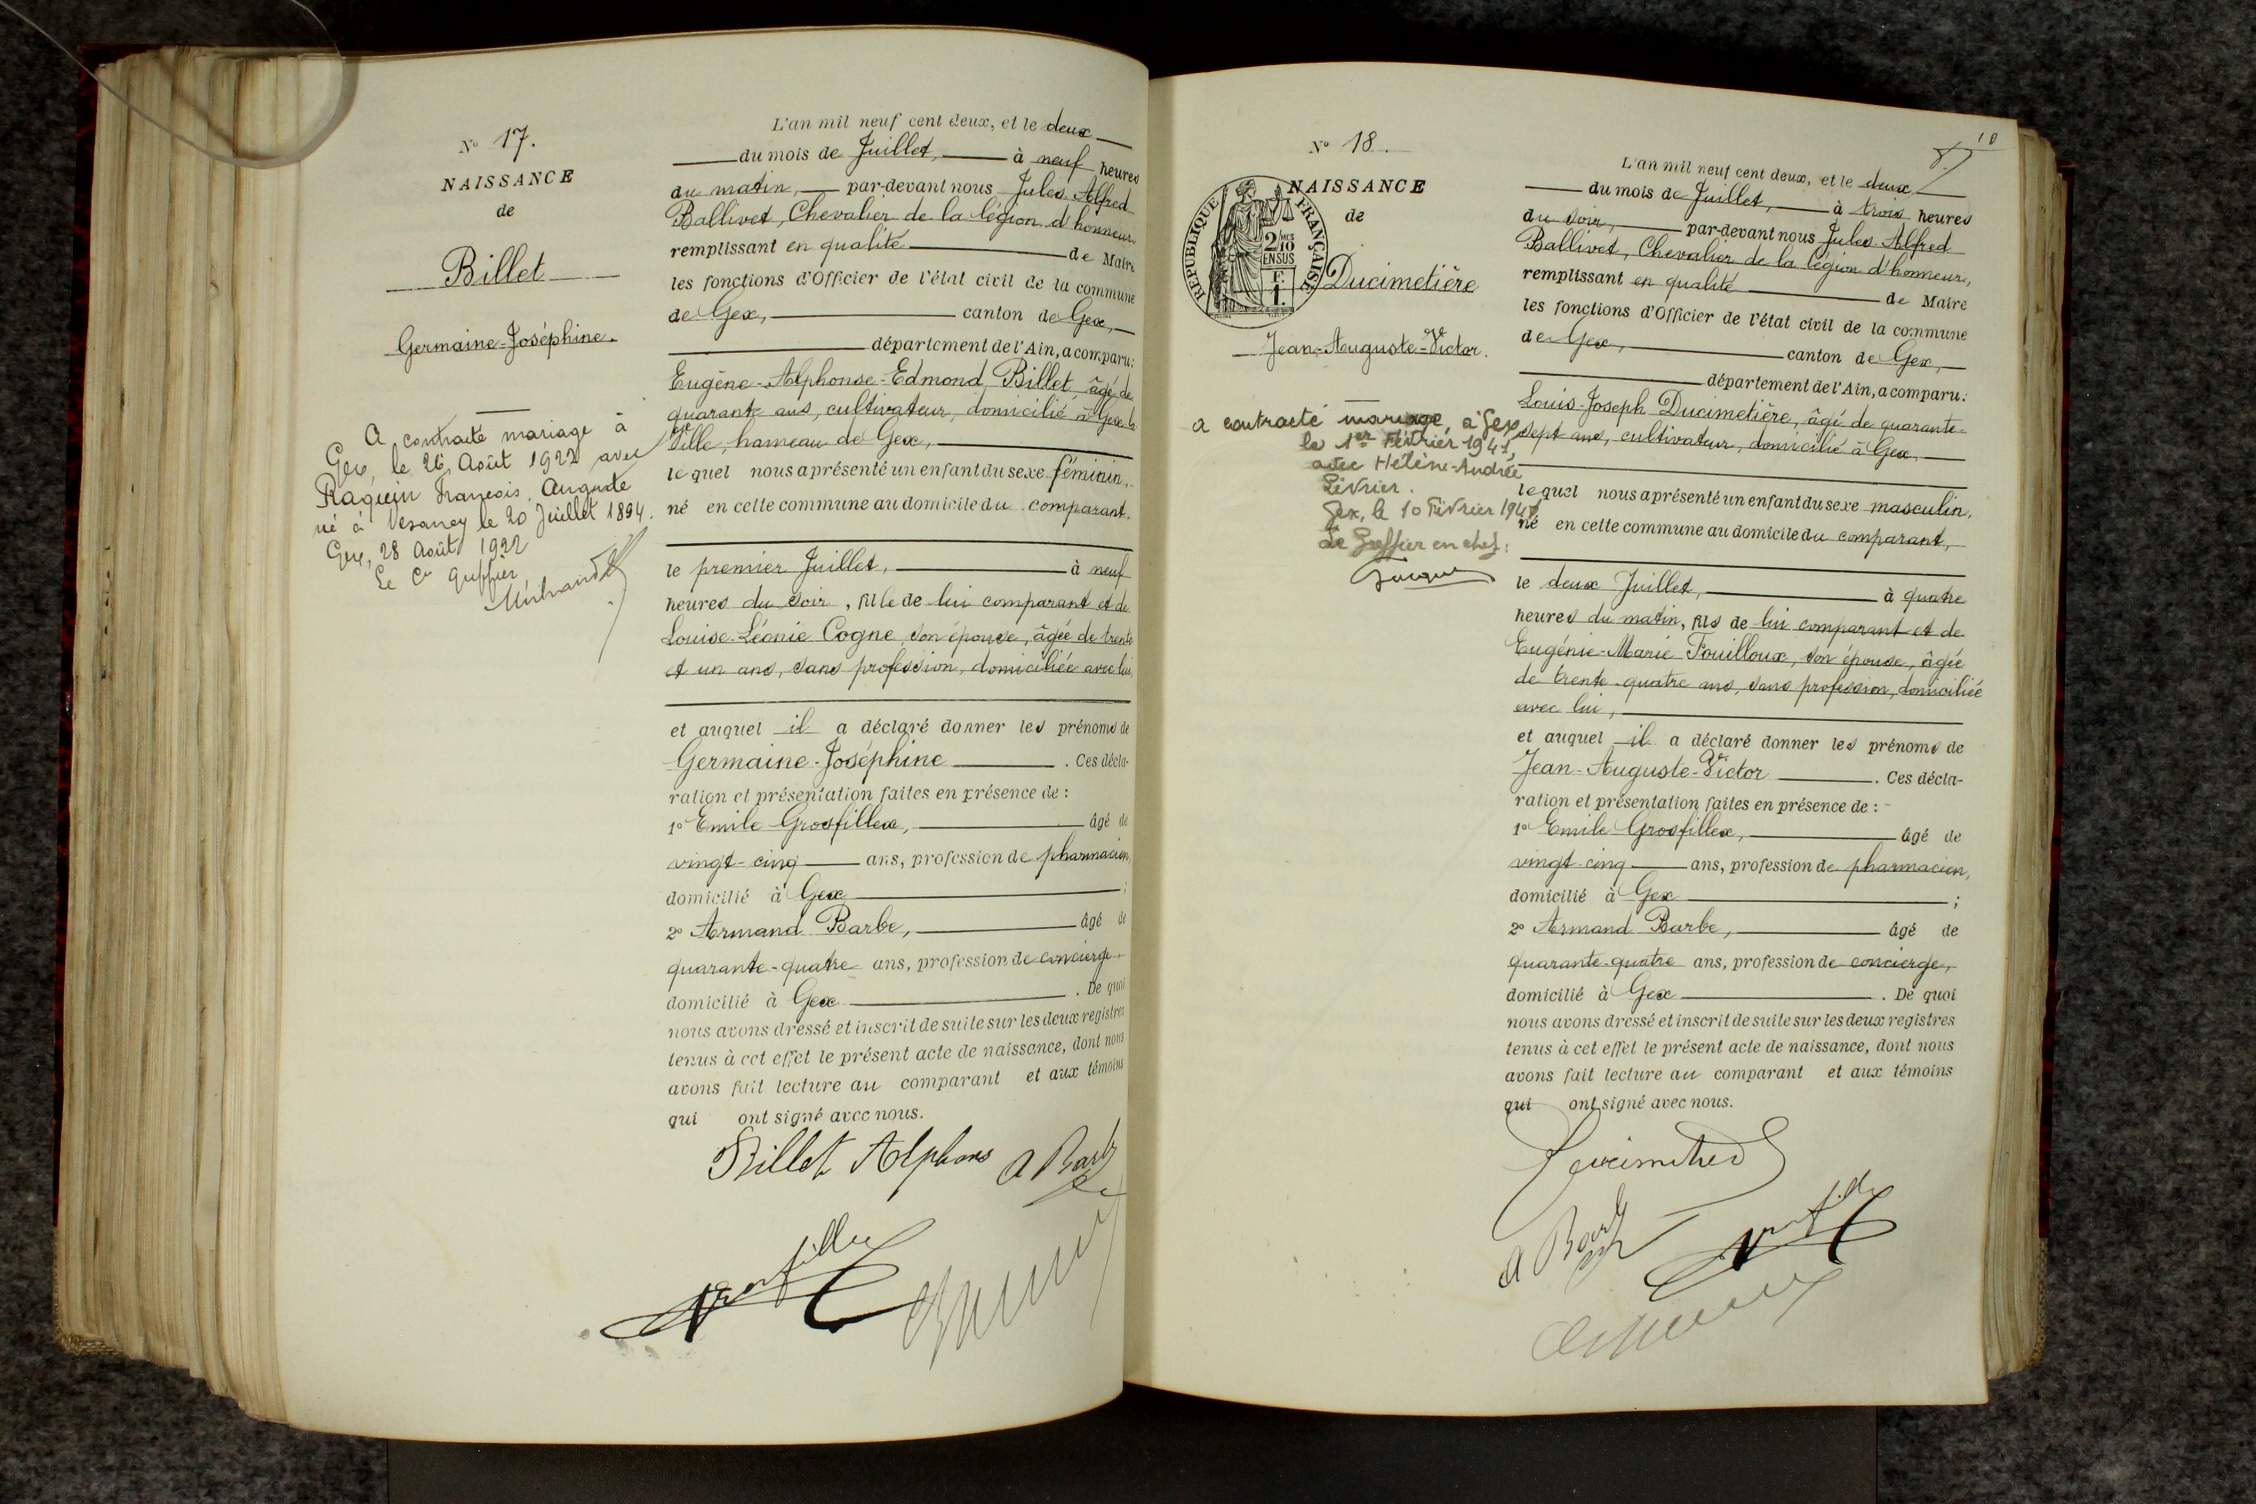 N° 17.
NAISSANCE
de
Billet
Germaine-Joséphine.
A contracté mariage à
Gex, le 26 Août 1922 avec
Raquin François Auguste
né à Vesancy le 20 Juillet 1894.
Gex, 28 Août 1922
Le Cis Greffier
L'an mil neuf cent deux, et le deux
du mois de Juillet, à neuf heures
du matin, par-devant nous Jules Alfred
Ballivet, Chevalier de la légion d'honneur
remplissant en qualité de Maire
les fonctions d'Officier de l'état civil de la commune
de Gex, canton de Gex,
département de l'Ain, a comparu:
Eugène-Alphonse-Edmond Billet, âgé de
quarante ans, cultivateur, domicilié à Gex la
Ville, hameau de Gex,
lequel nous a présenté un enfant du sexe féminin,
né en cette commune au domicile du comparant,
le premier Juillet, à neuf
heures du soir, fille de lui comparant et de
Louise-Léonie Cogne, son épouse, âgée de trente
et un ans, sans profession, domiciliée avec lui,
et auquel il a déclaré donner les prénoms de
Germaine-Joséphine. Ces décla-
ration et présentation faites en présence de :
1° Emile Grosfillex, âgé de
vingt-cinq ans, profession de pharmacien,
domicilié à Gex ;
2° Armand Barbe, âgé de
quarante-quatre ans, profession de concierge
domicilié à Gex. De quoi
nous avons dressé et inscrit de suite sur les deux registres
tenus à cet effet le présent acte de naissance, dont nous
avons fait lecture au comparant et aux témoins
qui ont signé avec nous.
Billet Alphons A Barbe
Grosfillex
10
N° 18.
NAISSANCE
de
RÉPUBLIQUE FRANÇAISE
2/10 EN SUS
F.
1.
Ducimetière
Jean-Auguste-Victor.
a contracté mariage, à Gex,
le 1er Février 1941,
avec Hélène-Andrée
Livrier.
Gex, le 10 Février 1941
Le Greffier en chef:
L'an mil neuf cent deux, et le deux
du mois de Juillet, à trois heures
du soir, par-devant nous Jules Alfred
Ballivet, Chevalier de la légion d'honneur,
remplissant en qualité de Maire
les fonctions d'Officier de l'état civil de la commune
de Gex, canton de Gex,
département de l'Ain, a comparu:
Louis-Joseph Ducimetière, âgé de quarante-
sept ans, cultivateur, domicilié à Gex,
lequel nous a présenté un enfant du sexe masculin,
né en cette commune au domicile du comparant,
le deux Juillet, à quatre
heures du matin, fils de lui comparant et de
Eugénie-Marie Fouilloux, son épouse, âgée
de trente-quatre ans, sans profession, domiciliée
avec lui,
et auquel il a déclaré donner les prénoms de
Jean-Auguste-Victor. Ces décla-
ration et présentation faites en présence de :
1° Emile Grosfillex, âgé de
vingt-cinq ans, profession de pharmacien,
domicilié à Gex ;
2° Armand Barbe, âgé de
quarante-quatre ans, profession de concierge,
domicilié à Gex. De quoi
nous avons dressé et inscrit de suite sur les deux registres
tenus à cet effet le présent acte de naissance, dont nous
avons fait lecture au comparant et aux témoins
qui ont signé avec nous.
A Barbe